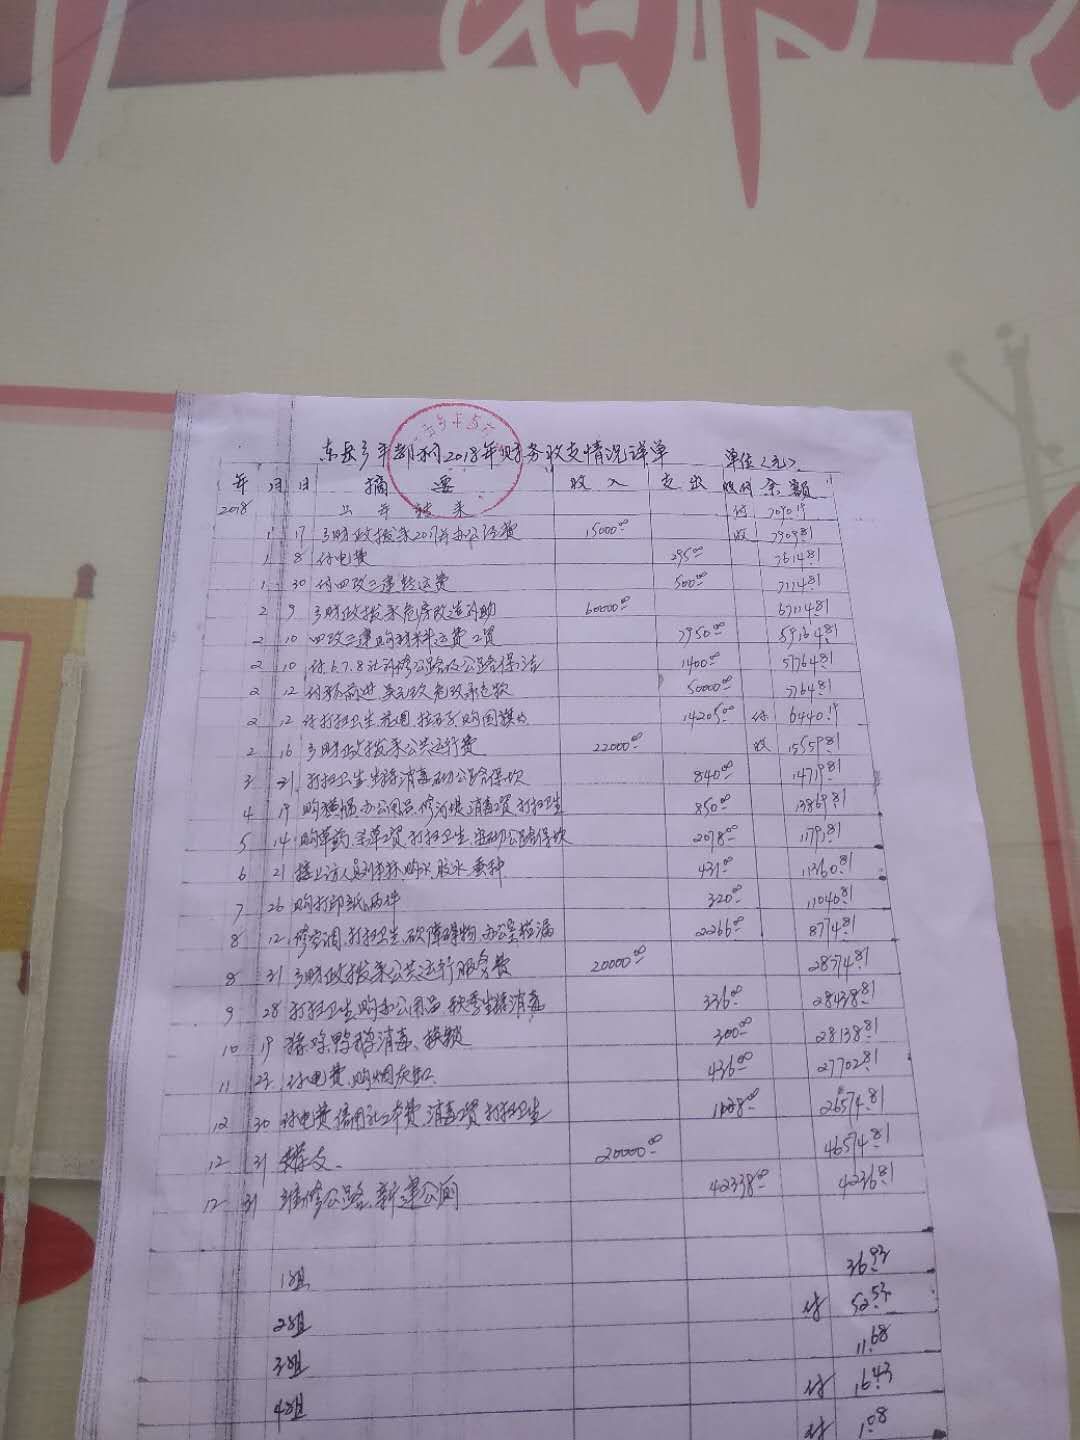 东岳乡平都村2018年财务收支情况详单 单位(元)
年 月 日 摘 要 收 入 支 出 收付 余 额
2018 上年结来 付 7090.19
1 17 乡财政拨来2017年办公经费 15000.00 收 7909.81
1 8 付电费 295.00 7614.81
1 30 付四改三建转运费 500.00 7114.81
2 9 乡财政拨来危房改造补助 60000.00 67114.81
2 10 四改三建购材料运费工资 7950.00 59164.81
2 10 付6.7.8社补修公路及公路保洁 1400.00 57764.81
2 12 危改承包款 50000.00 7764.81
2 12 付打扫卫生 购国旗 14205.00 付 6440.19
2 16 乡财政拨来公共运行费 22000.00 收 15559.81
3 31 打扫卫生.生猪消毒.砌公路保坎 840.00 14719.81
4 19 购横幅.办公用品.修河堤.消毒工资.打扫卫生 850.00 13869.81
5 14 购草药.工资.打扫卫生.砌公路保坎 2078.00 11791.81
6 21 接上访人员 购 胶水.蚕种 431.00 11360.81
7 26 购打印纸两件 320.00 11040.81
8 12 修空调.打扫卫生.砍障碍物.办公室捡漏 2266.00 8774.81
8 31 乡财政拨来公共运行服务费 20000.00 28774.81
9 28 打扫卫生.购办公用品.秋季生猪消毒 336.00 28438.81
10 19 猪.鸡.鸭鹅消毒、换锁 300.00 28138.81
11 23 付电费.购烟灰缸. 436.00 27702.81
12 30 付电费.信用社工本费.消毒工资.打扫卫生 1128.00 26574.81
12 31 20000.00 46574.81
12 31 维修公路.新建公厕 42338.00 4236.81
1组 36.93
2组 付 52.53
3组 11.68
4组 付 16.43
付 1.08